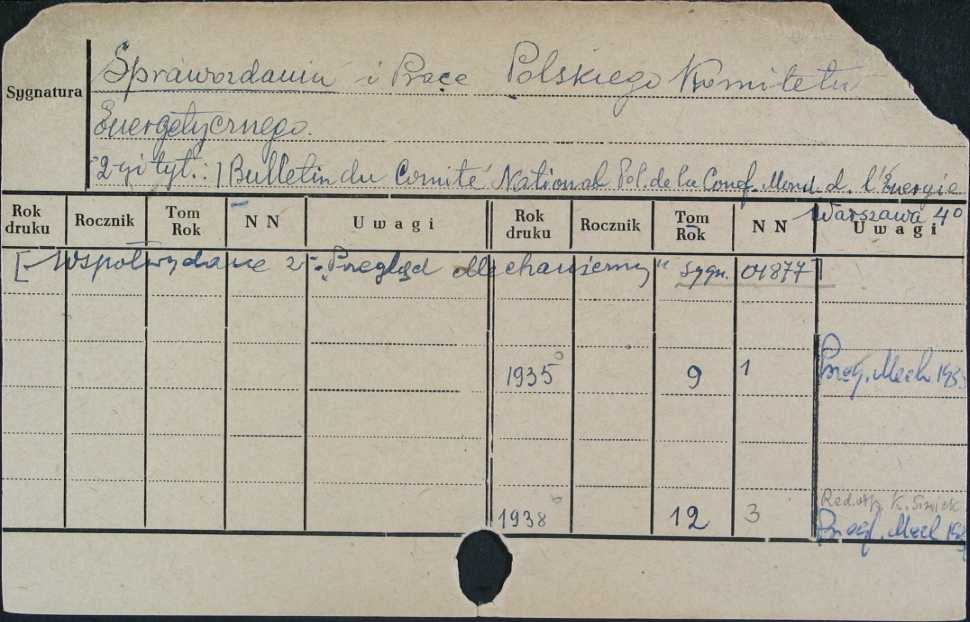 Sprawozdania i Prace Polskiego Komitetu
Sygnatura
Energetycznego.
2-gi tyt.: / Bulletin du Comité National Pol. de la Conf. Mond. d. l'Energie
Warszawa 4°
Rok druku Rocznik Tom Rok N N Uwagi Rok druku Rocznik Tom Rok N N Uwagi
[-Współwydane z: „Przegląd Mechaniczny" sygn. 01877]
1935 9 1 Przegl. Mech 193
1938 12 3 Red. K.
Przegl. Mech